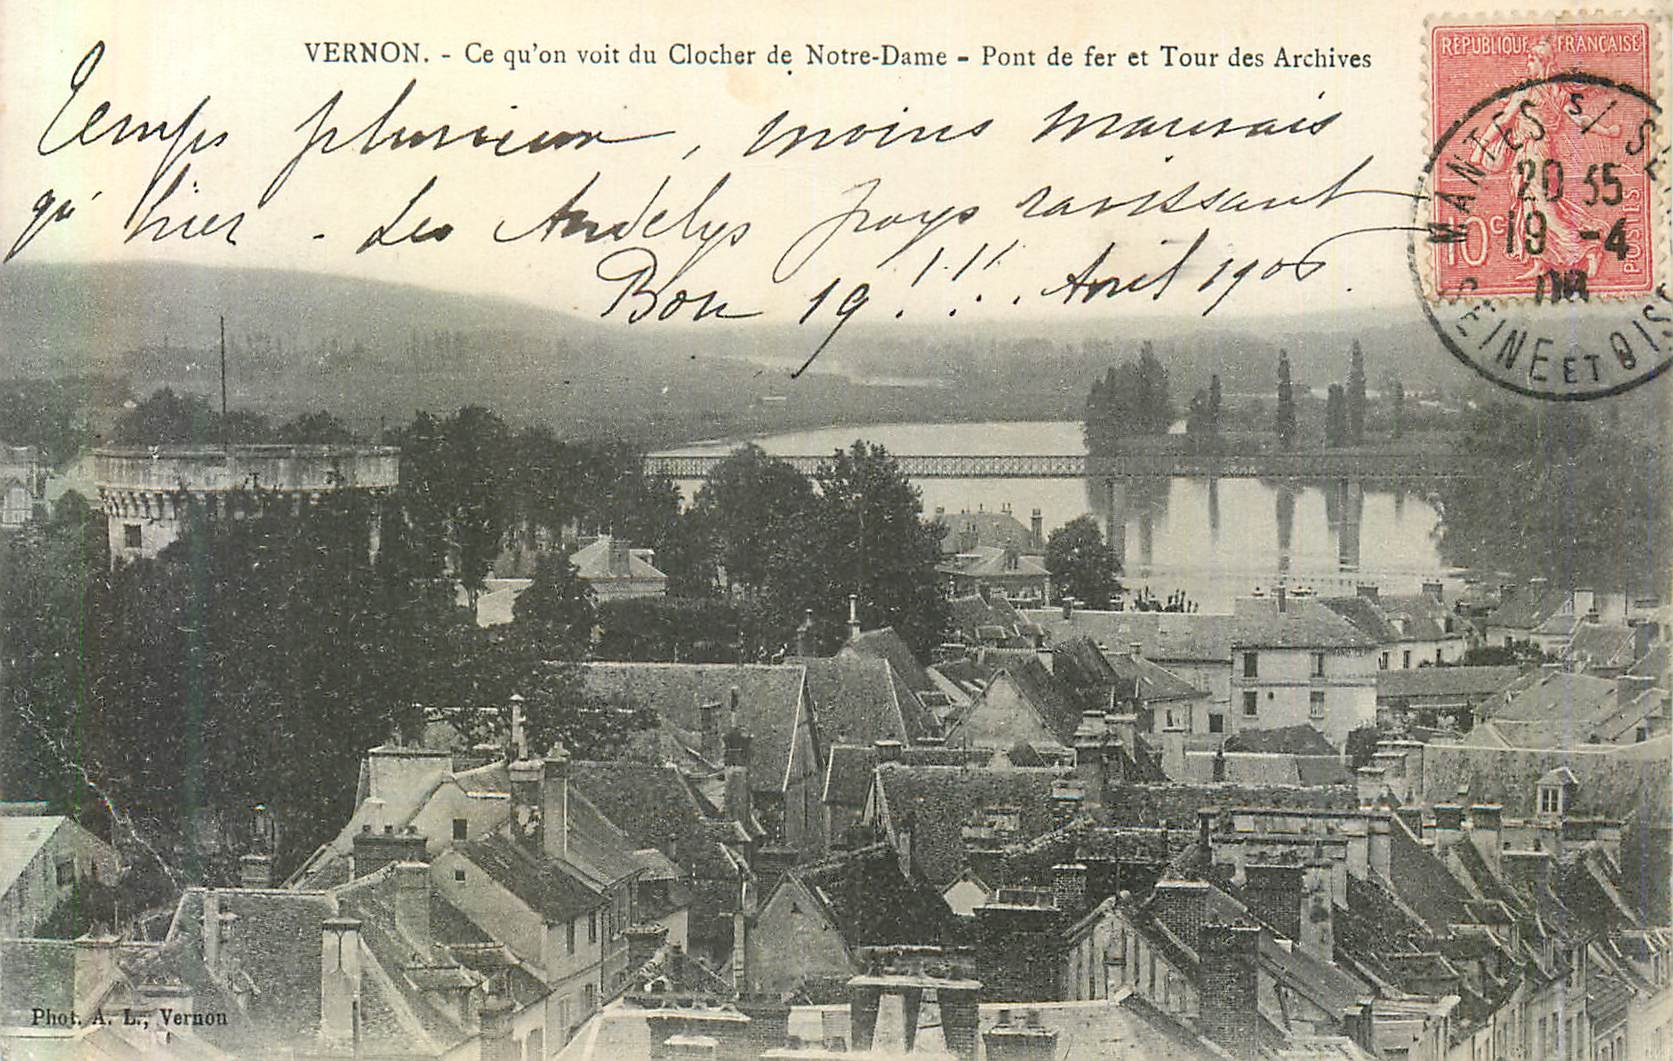 VERNON. - Ce qu'on voit du Clocher de Notre-Dame - Pont de fer et Tour des Archives
Temps pluvieux, moins mauvais
qu'hier - Les Andelys pays ravissant
Bon 19 !!! . Avril 1906.
REPUBLIQUE FRANÇAISE
10c
POSTES
MANTES S/ SE
20 35
19 -4
06
SEINE ET OISE
Phot. A. L., Vernon